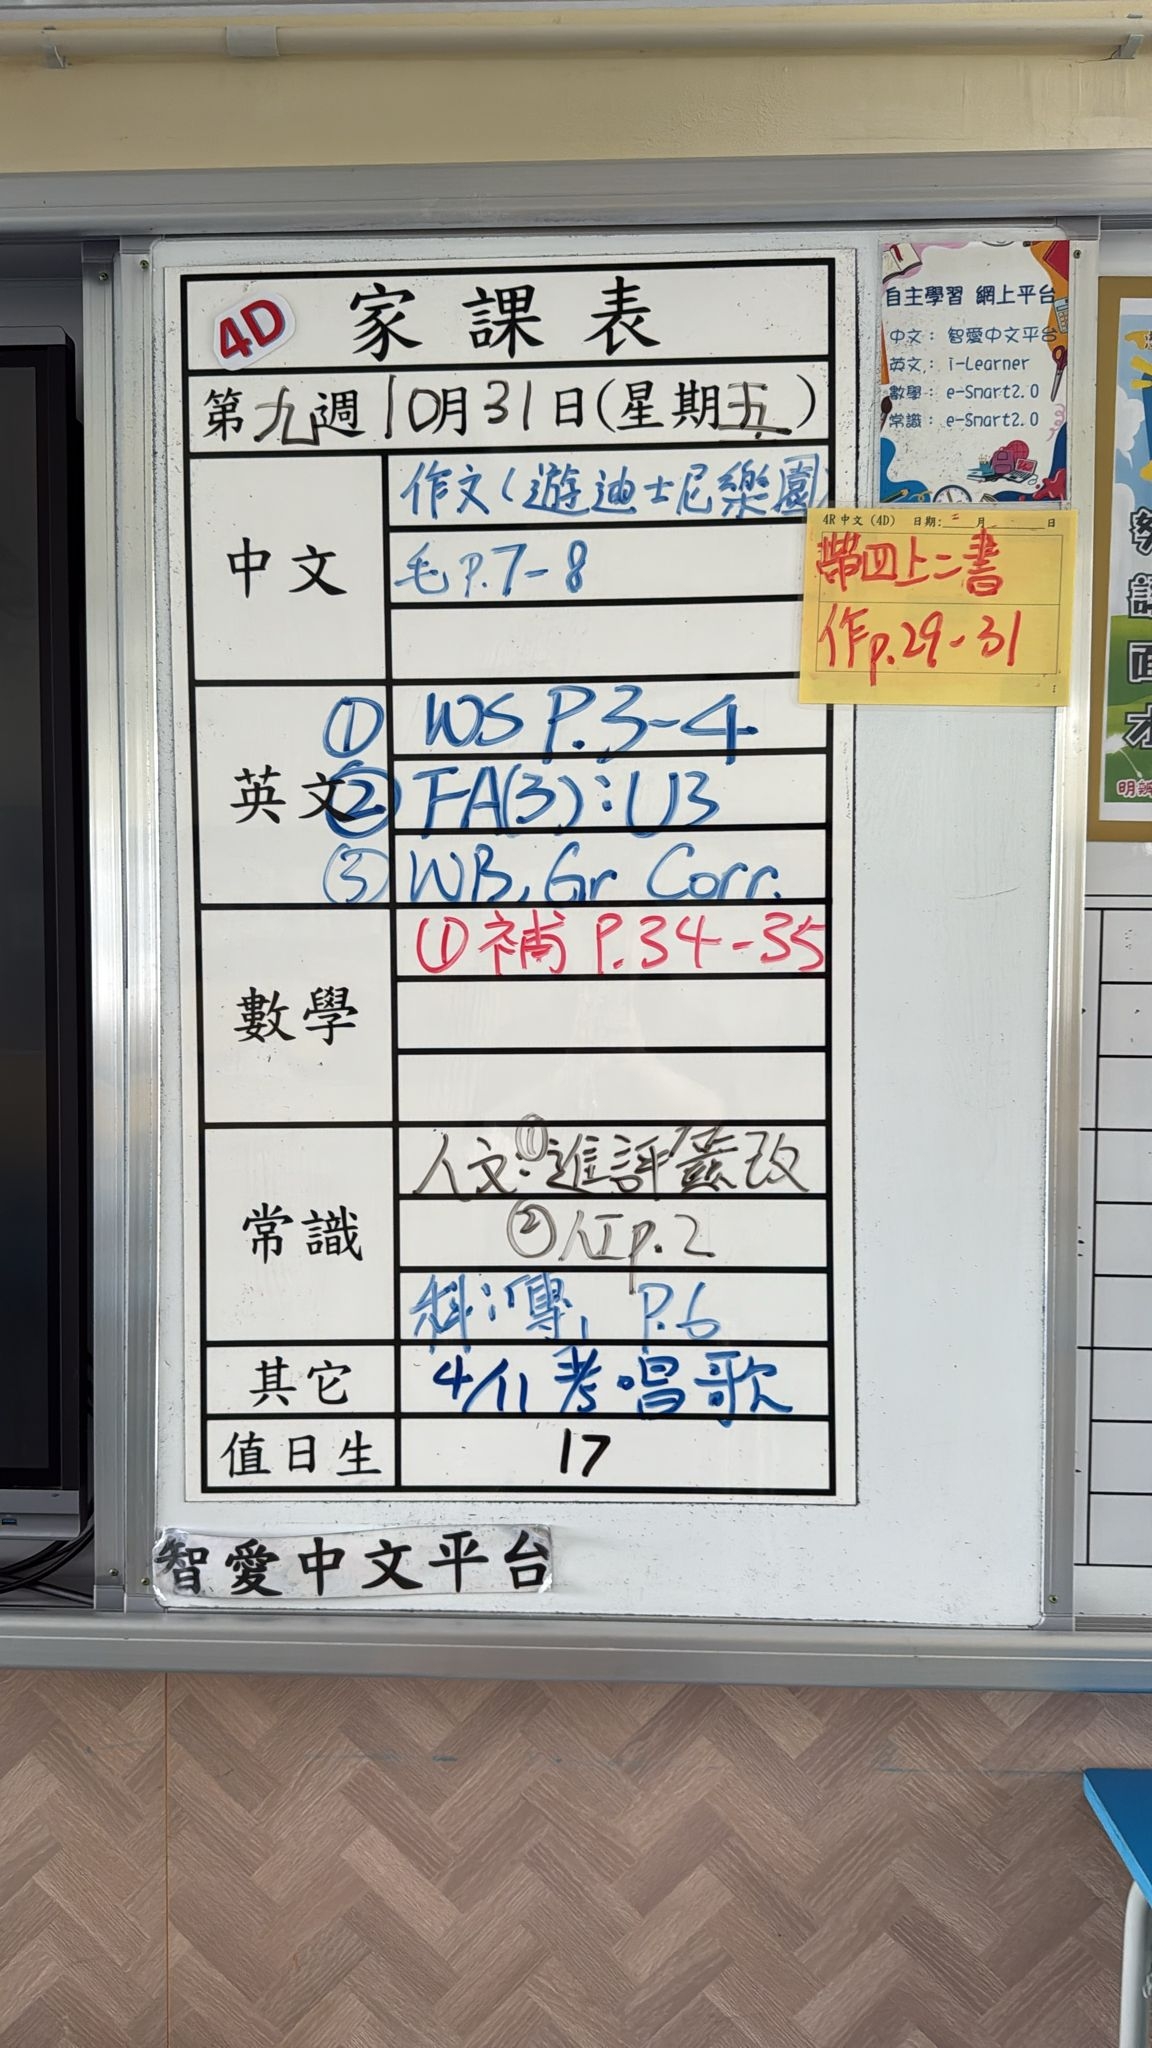 4D 家課表
第九週10月31日(星期五)
中文
作文(遊迪士尼樂園)
毛P.7-8
英文
① WS P.3-4
② FA(3):U3
③ WB, Gr Corr.
數學
①補 P.34-35
常識
人文:①進評簽改
②人工p.2
科:專, P.6
其它
4/11 考唱歌
值日生
17
智愛中文平台
自主學習 網上平台
中文: 智愛中文平台
英文: i-Learner
數學: e-Smart2.0
常識: e-Smart2.0
4R 中文(4D) 日期: 月 日
帶四上二書
作p.29-31